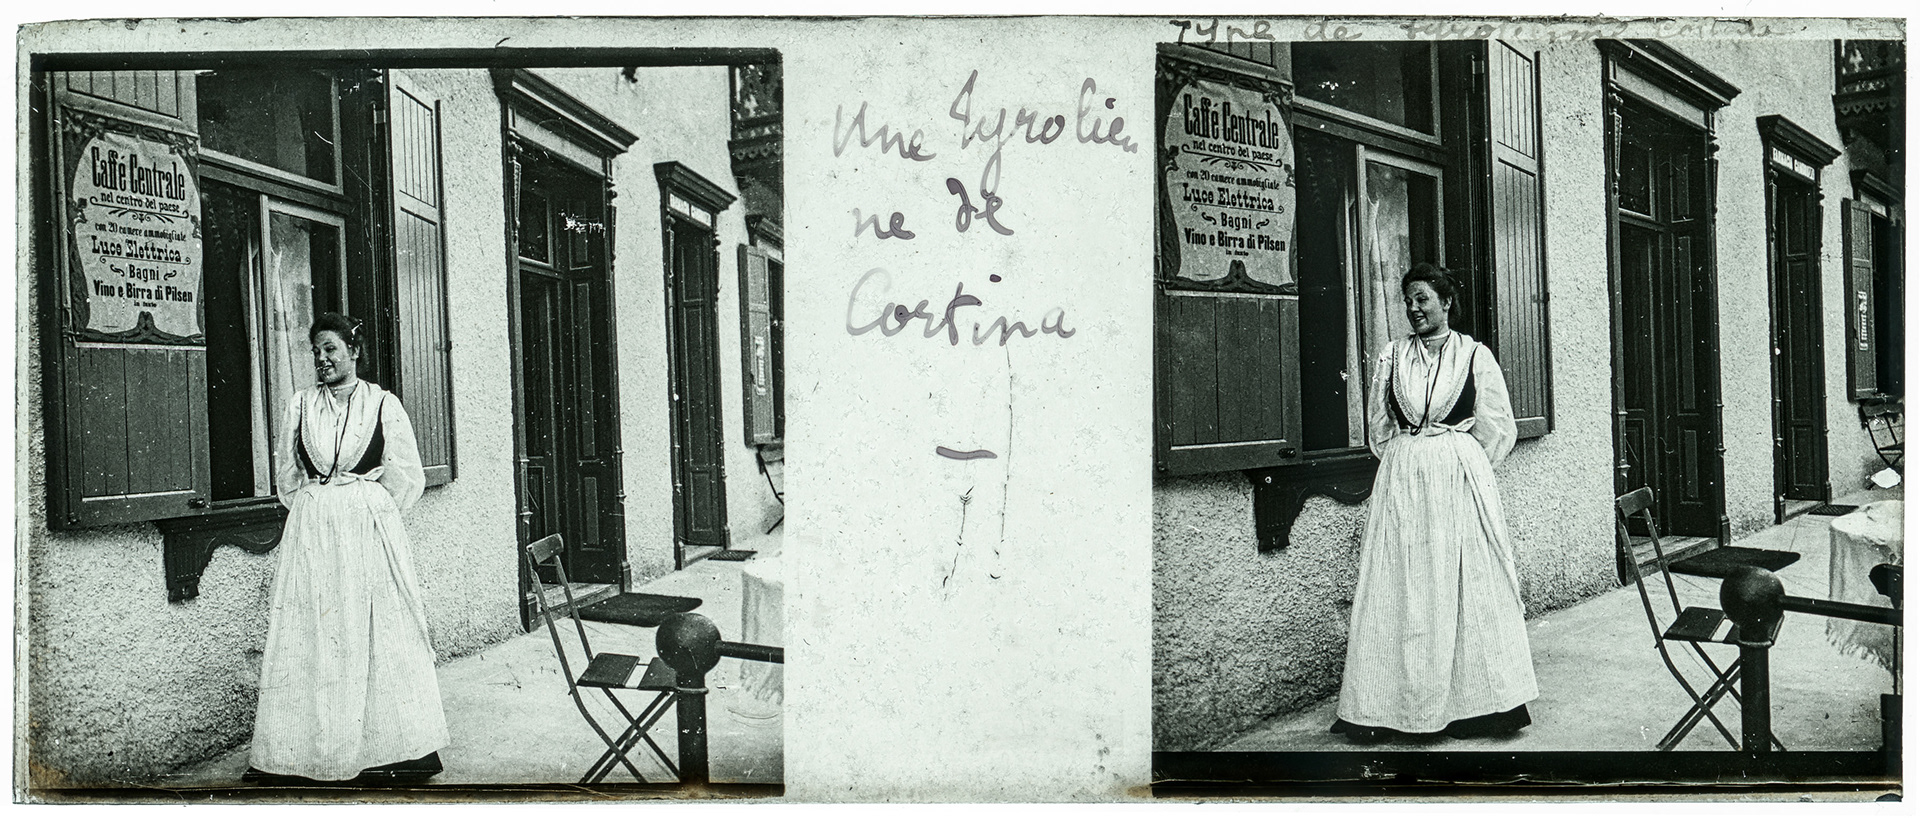 Caffé Centrale
nel centro del paese
con 20 camere ammobigliate
Luce Elettrica
Bagni
Vino e Birra di Pilsen
Une Tyrolien
ne de
Cortina
Type de
Caffé Centrale
nel centro del paese
con 20 camere ammobigliate
Luce Elettrica
Bagni
Vino e Birra di Pilsen